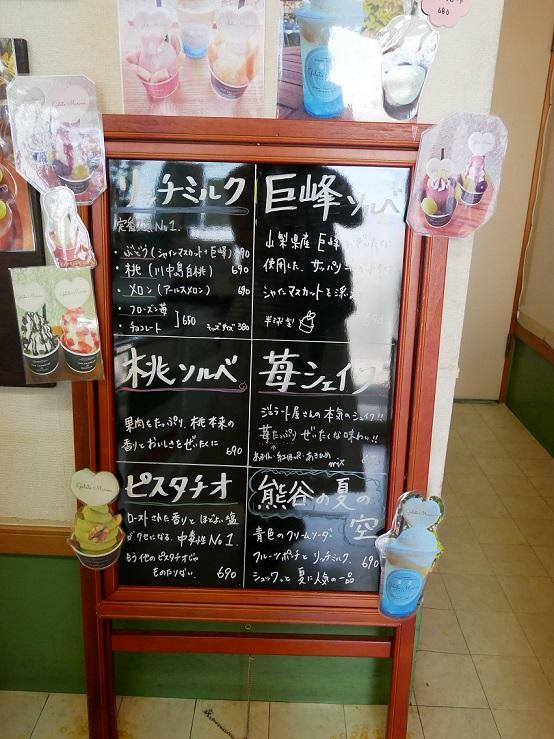 680
リッチミルク
定番人気 No.1
・ぶどう(シャインマスカット+巨峰) 690
・桃(川中島白桃) 690
・メロン(アールスメロン) 690
・フローズン苺
・チョコレート ]650
キッズサイズ 380
巨峰ソルベ
山梨県産 巨峰
使用した、サッパリ
シャインマスカットを添
桃ソルベ
果肉もたっぷり、桃本来の
香りとおいしさをぜいたくに
690
苺シェイク
ジェラート屋さんの本気のシェイク!!
苺たっぷり ぜいたくな味わい!!
mix
ピスタチオ
ローストされた香りと ほどよい塩
がクセになる。中毒性 No1.
もう他のピスタチオじゃ
ものたりない。 690
熊谷の夏の
空
青色のクリームソーダ
フルーツポンチと リッチミルク。 690
シュワっと 夏に人気の一品